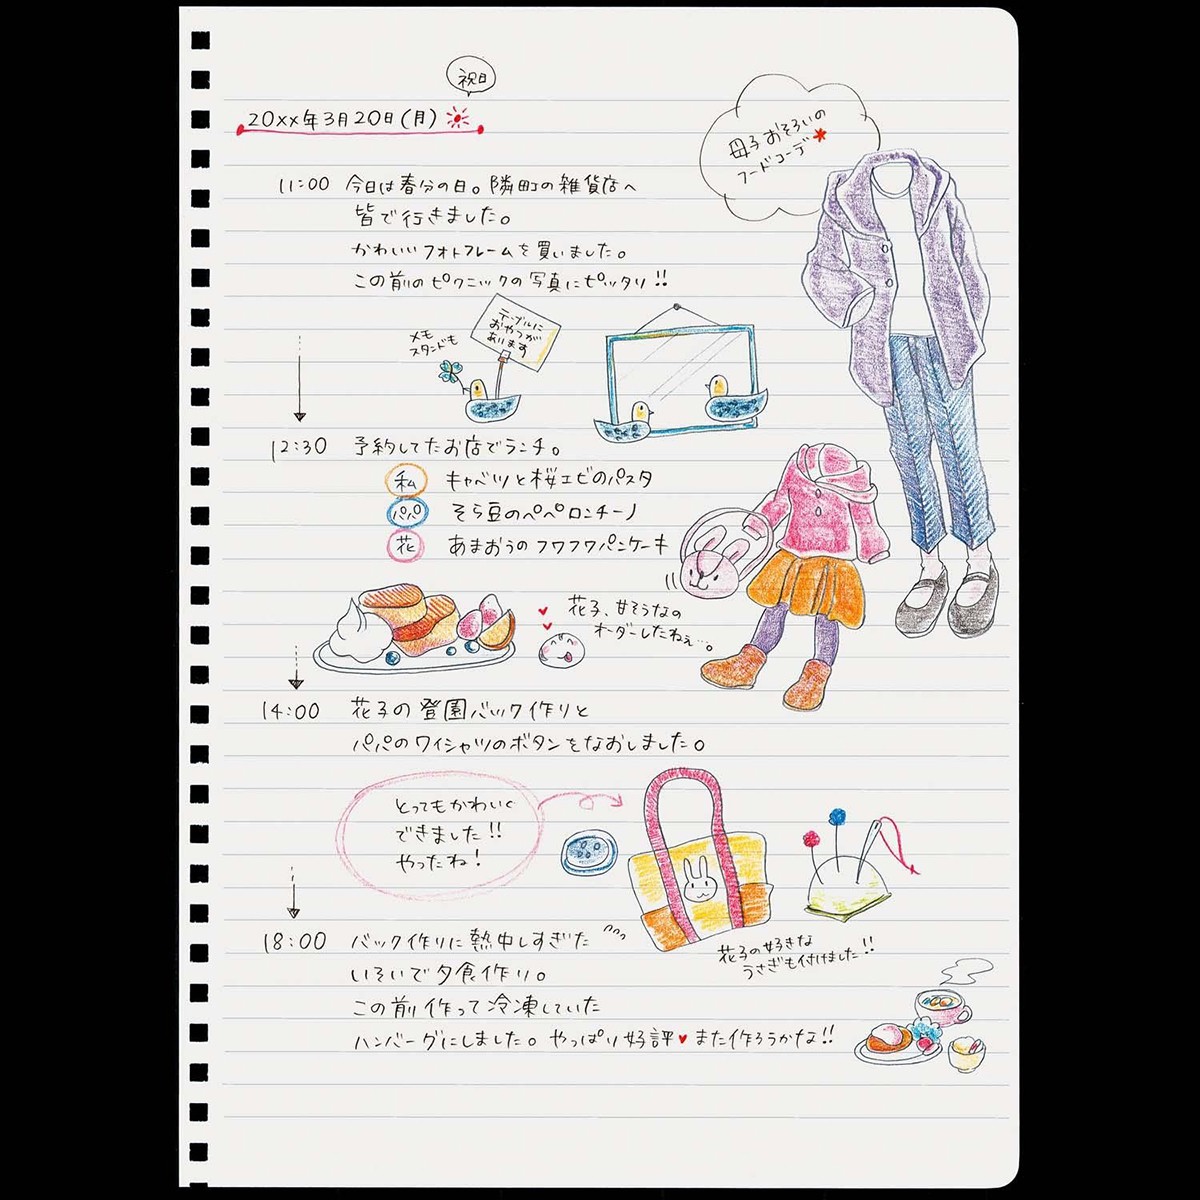 祝日
20××年3月20日(月)
母子おそろいの
フードコーデ*
11:00 今日は春分の日。隣町の雑貨店へ
皆で行きました。
かわいいフォトフレームを買いました。
この前のピクニックの写真にピッタリ!!
メモ
スタンドも
テーブルに
おやつが
あります
12:30 予約してたお店でランチ。
私 キャベツと桜エビのパスタ
パパ そら豆のペペロンチーノ
花 あまおうのフワフワパンケーキ
花子、甘そうなの
オーダーしたねぇ…。
14:00 花子の登園バック作りと
パパのワイシャツのボタンをなおしました。
とってもかわいく
できました!!
やったね!
花子の好きな
うさぎも付けました!!
18:00 バック作りに熱中しすぎた
いそいで夕食作り。
この前作って冷凍していた
ハンバーグにしました。やっぱり好評♥また作ろうかな!!